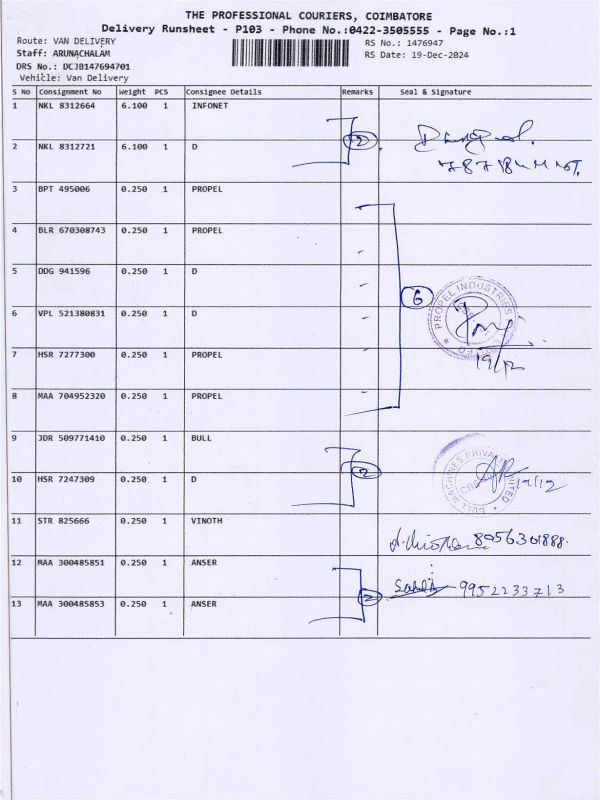 THE PROFESSIONAL COURIERS, COIMBATORE
Delivery Runsheet - P103 - Phone No.:0422-3505555 - Page No.:1
Route: VAN DELIVERY RS No.: 1476947
Staff: ARUNACHALAM RS Date: 19-Dec-2024
DRS No.: DCJB147694701
Vehicle: Van Delivery
S No Consignment No Weight PCS Consignee Details Remarks Seal & Signature
1 NKL 8312664 6.100 1 INFONET
2
2 NKL 8312721 6.100 1 D
3 BPT 495006 0.250 1 PROPEL
4 BLR 670308743 0.250 1 PROPEL
5 DDG 941596 0.250 1 D
6 PROPEL INDUSTRIES
6 VPL 521380831 0.250 1 D
7 HSR 7277300 0.250 1 PROPEL
19/12
8 MAA 704952320 0.250 1 PROPEL
9 JDR 509771410 0.250 1 BULL
2 BULL MACHINES PRIVATE LIMITED
19/12
10 HSR 7247309 0.250 1 D
11 STR 825666 0.250 1 VINOTH
8056301888.
12 MAA 300485851 0.250 1 ANSER
2 9952233713
13 MAA 300485853 0.250 1 ANSER